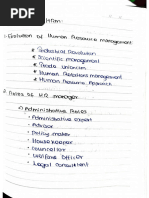 1. Evolution of Human Resource management:
* Industrial Revolution
* Scientific management
* Trade unionism
* Human Relations management
* Human Resource Approach
2. Roles of HR manager
i) Administrative Roles
• Administrative expert
• Advisor
• Policy maker
• Housekeeper
• Counsellor
• Welfare officer
• Legal consultant